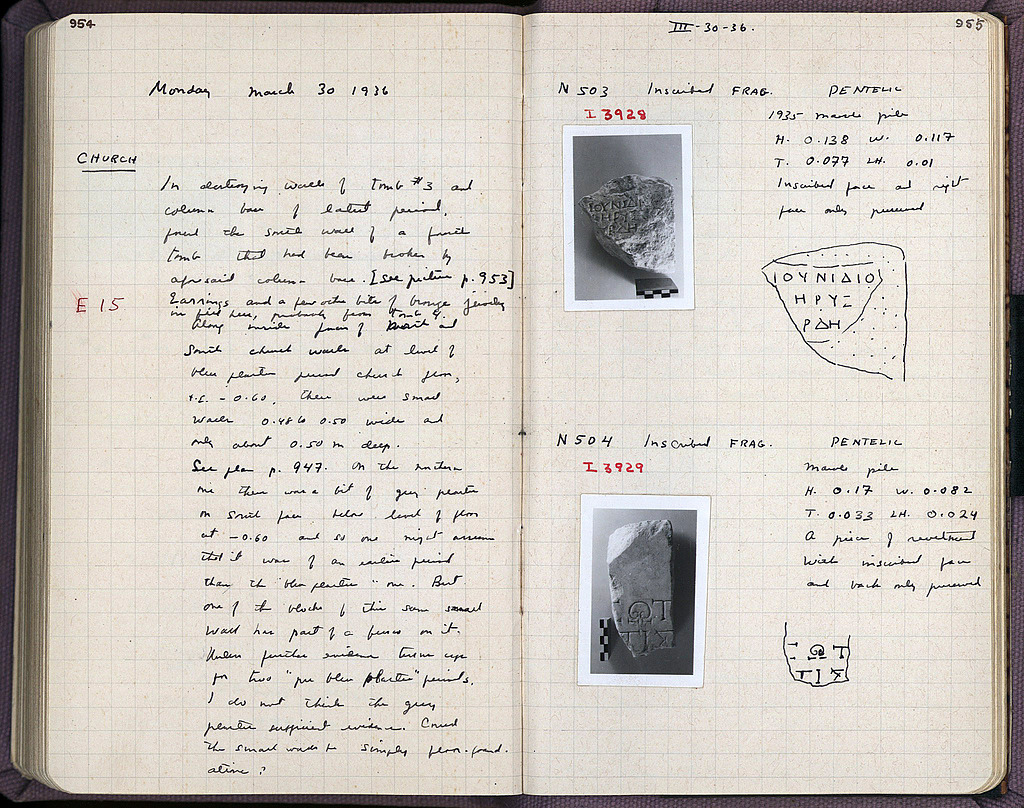 954
Monday March 30 1936
CHURCH
In destroying walls of Tomb #3 and
column base of latest period,
found the south wall of a fourth
tomb that had been broken by
aforesaid column base. [See picture p. 953]
E 15
Earrings and a few other bits of bronze jewelry
in fill here, probably from Tomb 4.
Along inside faces of and
South church walls at level of
blue plaster period church floor,
i.e. -0.60, there were small
walls 0.48 to 0.50 wide and
only about 0.50 m deep.
See plan p. 947. On the northern
one there was a bit of grey plaster
on south face below level of floor
at -0.60 and so one might assume
that it was of an earlier period
than the "blue plaster" one. But
one of the blocks of this same small
wall has part of a fresco on it.
Unless further evidence turns up
for two "pre blue plaster" periods,
I do not think the grey
plaster sufficient evidence. Could
the small walls be simply floor-found-
ations?
955
III-30-36.
N 503 Inscribed FRAG. PENTELIC
I 3928
1935 marble pile
H. 0.138 W. 0.117
T. 0.077 LH. 0.01
Inscribed face and right
face only preserved
ΙΟΥΝΙΔΙΟ
ΗΡΥΞ
ΡΔΗ
N 504 Inscribed FRAG. PENTELIC
I 3929
Marble pile
H. 0.17 W. 0.082
T. 0.033 LH. 0.024
A piece of revetment
with inscribed face
and back only preserved